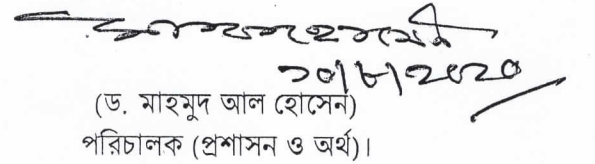 ১০/৮/২০২০
(ড. মাহমুদ আল হোসেন)
পরিচালক (প্রশাসন ও অর্থ)।